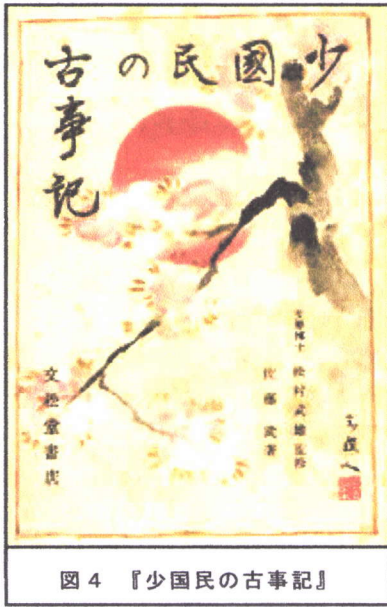 少國民の
古事記
文學博士 松村武雄監修
佐藤武著
文松堂書店
図4 『少国民の古事記』